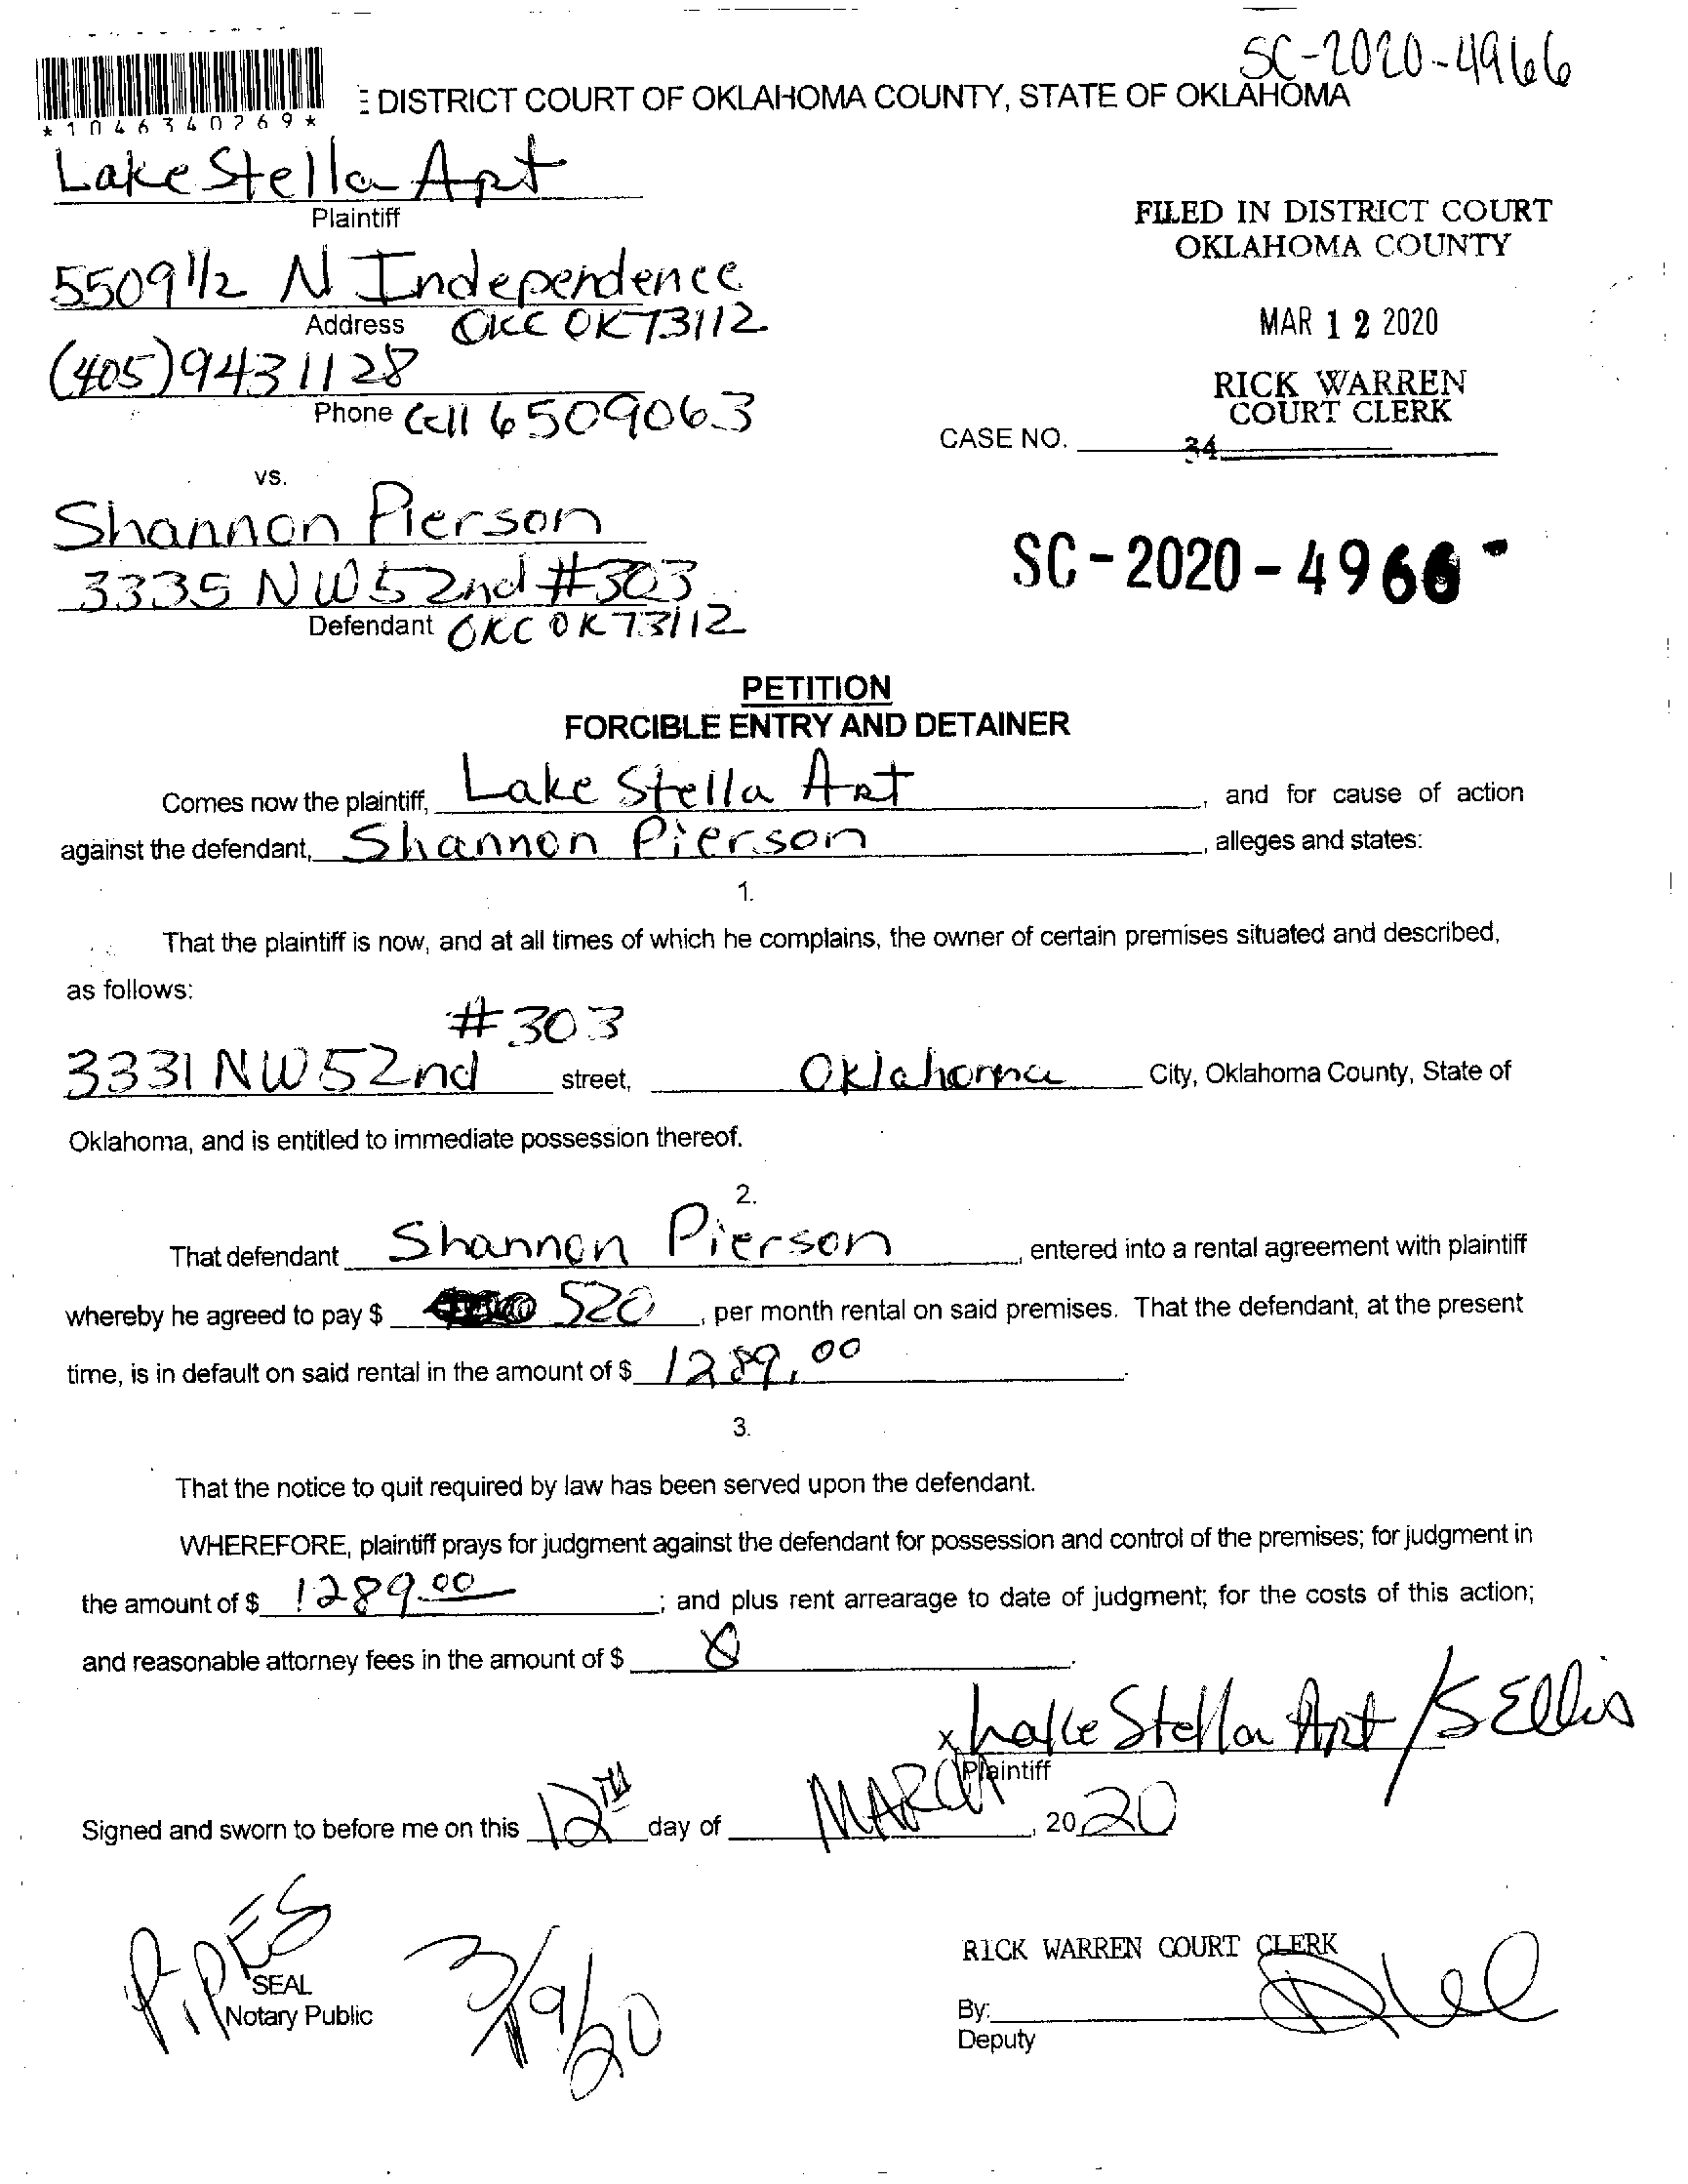 SC-2020-4966
E DISTRICT COURT OF OKLAHOMA COUNTY, STATE OF OKLAHOMA
*1046340769*
Lake Stella Apt
Plaintiff
FILED IN DISTRICT COURT
OKLAHOMA COUNTY
5509 1/2 N Independence
Address OKC OK 73112
MAR 12 2020
(405) 943 1128
RICK WARREN
COURT CLERK
Phone Cell 6509063
CASE NO.
34
vs.
Shannon Pierson
3335 NW 52nd #303
SC-2020-4966-
Defendant OKC OK 73112
PETITION
FORCIBLE ENTRY AND DETAINER
Comes now the plaintiff, Lake Stella Apt, and for cause of action
against the defendant, Shannon Pierson, alleges and states:
1.
That the plaintiff is now, and at all times of which he complains, the owner of certain premises situated and described,
as follows:
#303
3331 NW 52nd street, Oklahoma City, Oklahoma County, State of
Oklahoma, and is entitled to immediate possession thereof.
2.
That defendant Shannon Pierson, entered into a rental agreement with plaintiff
whereby he agreed to pay $ 520, per month rental on said premises. That the defendant, at the present
time, is in default on said rental in the amount of $ 1289.00.
3.
That the notice to quit required by law has been served upon the defendant.
WHEREFORE, plaintiff prays for judgment against the defendant for possession and control of the premises; for judgment in
the amount of $ 1289.00; and plus rent arrearage to date of judgment; for the costs of this action;
and reasonable attorney fees in the amount of $
x Lake Stella Apt / S Ellis
Plaintiff
Signed and sworn to before me on this 12TH day of MARCH, 2020
PIPES
SEAL
Notary Public
3/19/20
RICK WARREN COURT CLERK
By:
Deputy